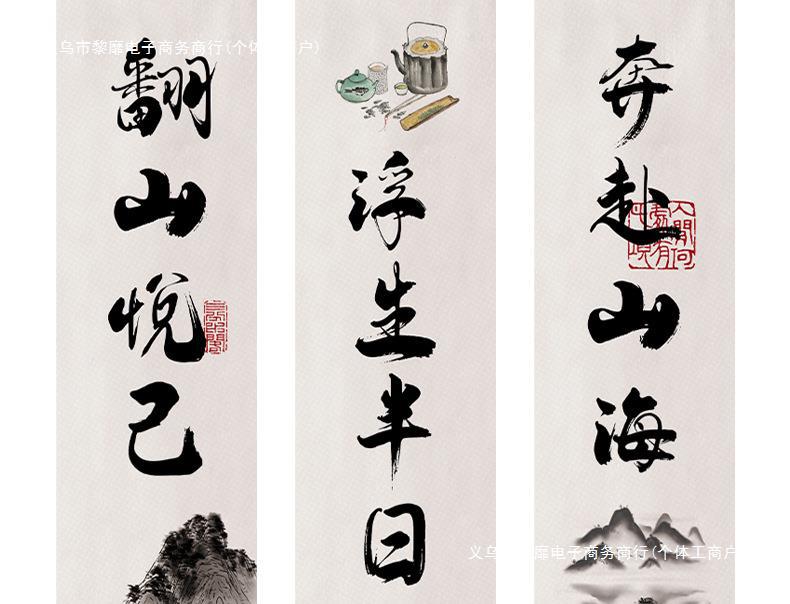 翻山悦己
浮生半日
奔赴山海
乌市黎靡电子商务商行(个体工商户)
义乌市黎靡电子商务商行(个体工商户